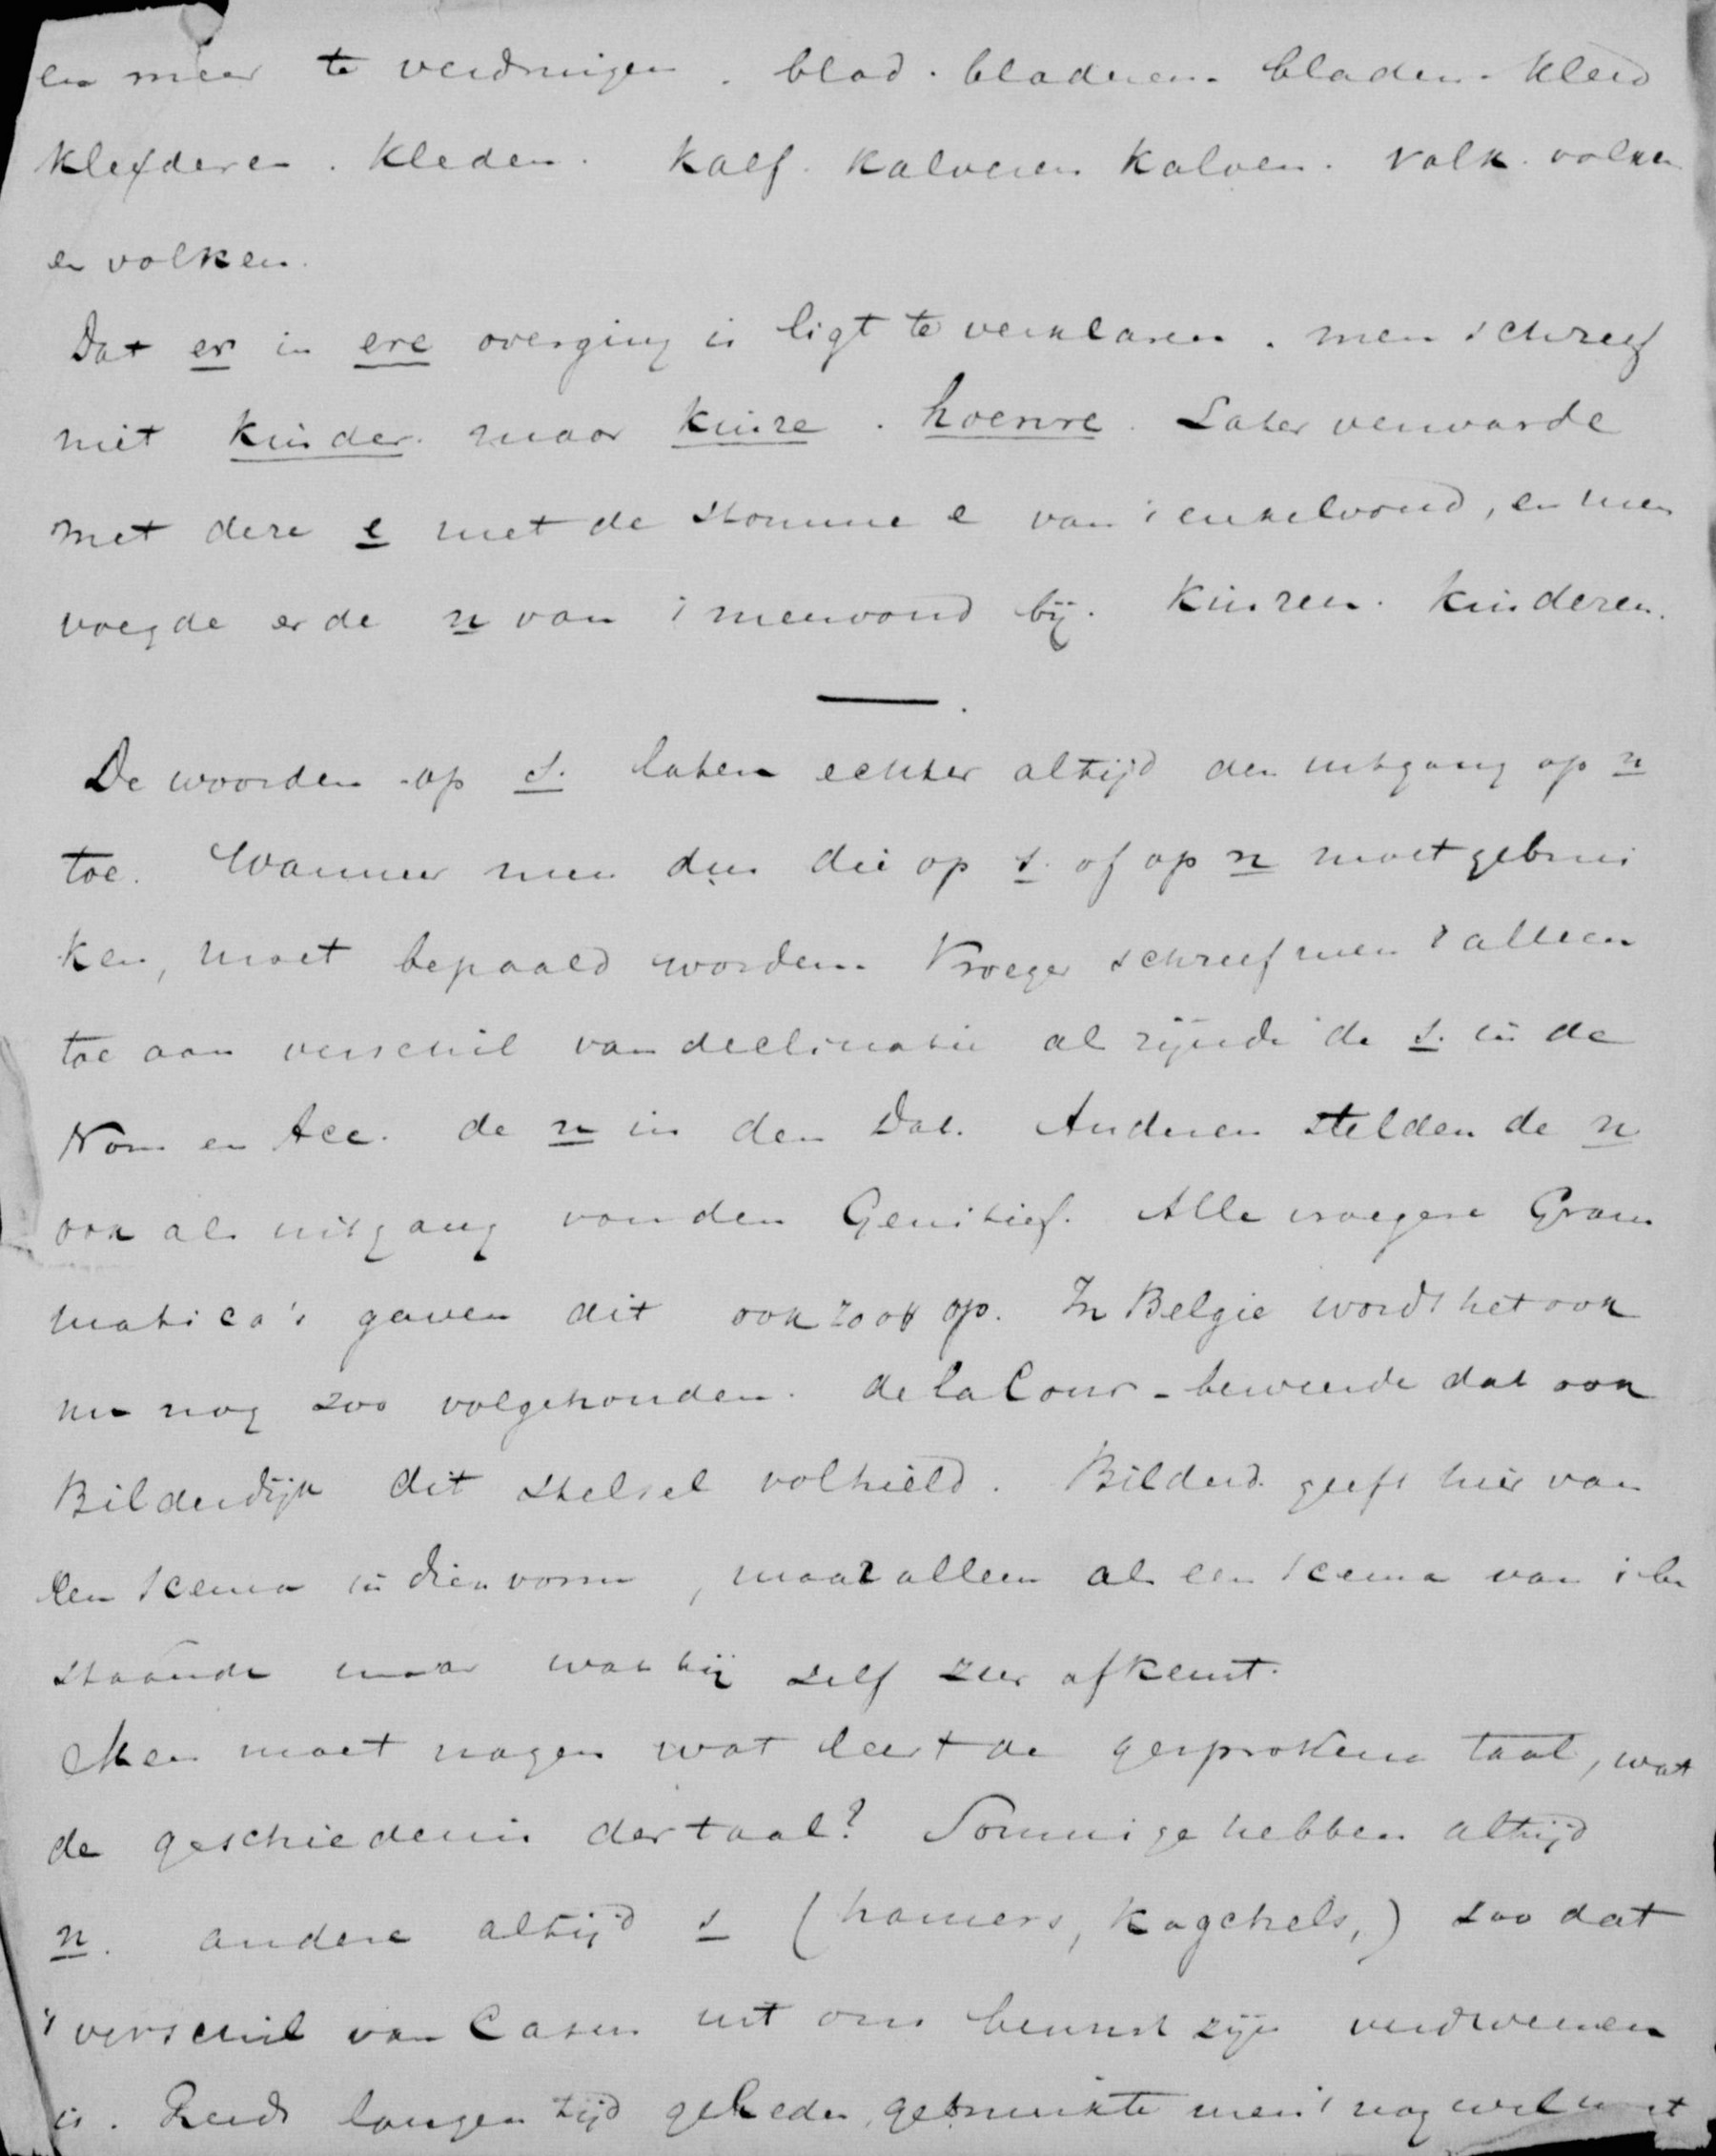 en meer te verdringen. blad. bladeren. bladen. kleed
kleederen. kleden. kalf. kalveren kalven. volk. volker
en volken.
Dat er in ere overging is ligt te verklaren. men schreef
niet kinder. maar kinre. hoenre. Later verwarde
met deze e met de stomme e van 't enkelvoud, en men
voegde er de n van 't meervoud bij. Kinren. Kinderen.
De woorden op s. laten echter altijd den uitgang op n
toe. Wanneer men dus die op s. of op n moet gebrui
ken, moet bepaald worden. Vroeger schreef men 't alleen
toe aan verschil van declinatie als zijnde de s. in de
Nom en Acc. de n in den Dat. Anderen stelden de n
ook als uitgang van den Genitief. Alle vroegere Gram
matica's gaven dit ook zoo op. In Belgie wordt het ook
nu nog zoo volgehouden. de la Cour beweerde dat ook
Bilderdijk dit stelsel volhield. Bilderd. geeft hier van
een scema in dien vorm, maar alleen als een scema van 't be
staande maar wat hij zelf zeer afkeurt.
Men moet vragen wat leert de gesprokene taal, wat
de geschiedenis der taal? Sommige hebben altijd
n. andere altijd s (hamers, kagchels,) zoo dat
't verschil van Casus uit ons bewust zijn verdwenen
is. Reeds langen tijd geleden gebruikte men 't nog wel